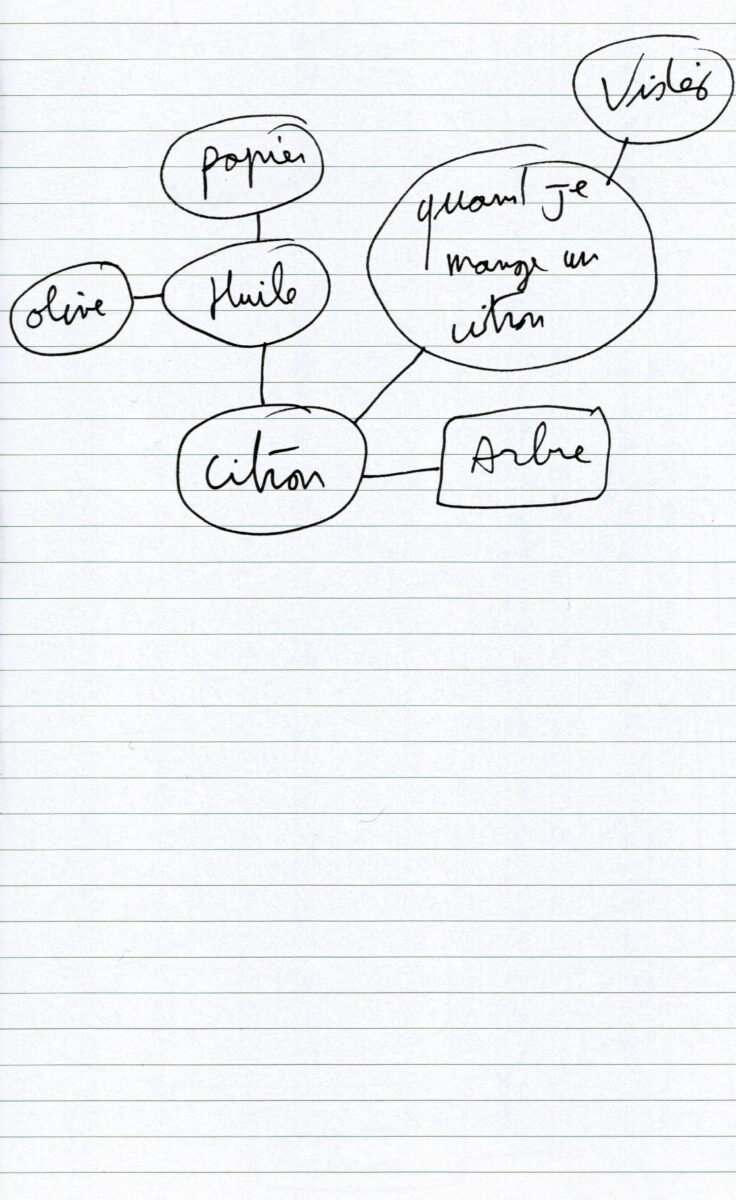 papier
Huile
olive
quand je
mange un
citron
citron
Arbre